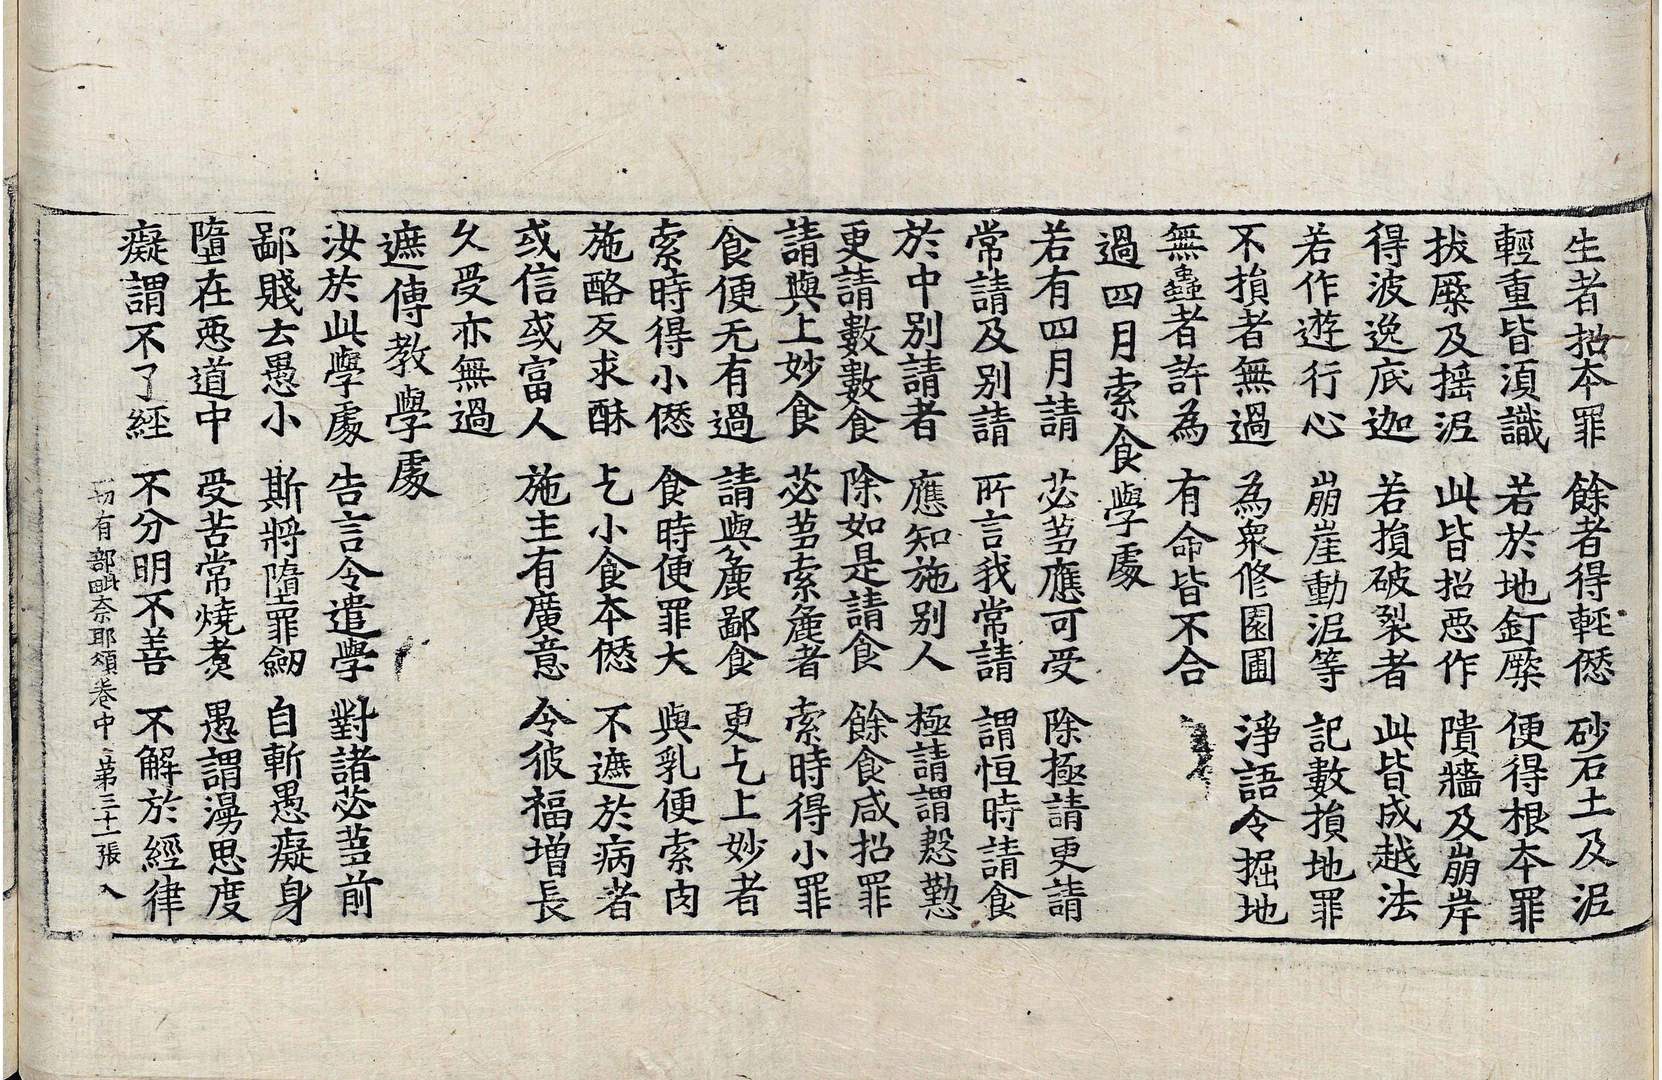 生者招本罪　餘者得輕𠎝　砂石土及泥
輕重皆湏識　若於地釘橛　便得根本罪
拔橛及揺泥　此皆招悪作　隤牆及崩岸
得波逸底迦　若損破裂者　此皆成越法
若作遊行心　崩崖動泥等　記數損地罪
不損者無過　為衆修園圃　淨語令掘地
無蟲者許為　有命皆不合
過四月索食學處
若有四月請　苾芻應可受　除極請更請
常請及别請　所言我常請　謂恒時請食
於中别請者　應知施别人　極請謂慇懃
更請數數食　除如是請食　餘食咸招罪
請與上妙食　苾芻索麁者　索時得小罪
食便无有過　請與麁鄙食　更乞上妙者
索時得小𠎝　食時便罪大　與乳便索肉
施酪及求酥　乞小食本𠎝　不遮於病者
或信或富人　施主有廣意　令彼福増長
久受亦無過
遮傳教學處
汝於此學處　告言令遣學　對諸苾芻前
鄙賤去愚小　斯將墮罪劒　自斬愚癡身
墮在悪道中　受苦常燒煑　愚謂溺思度
癡謂不了經　不分明不善　不解於經律
一切有部毗奈耶頌卷中　第三十一張　入